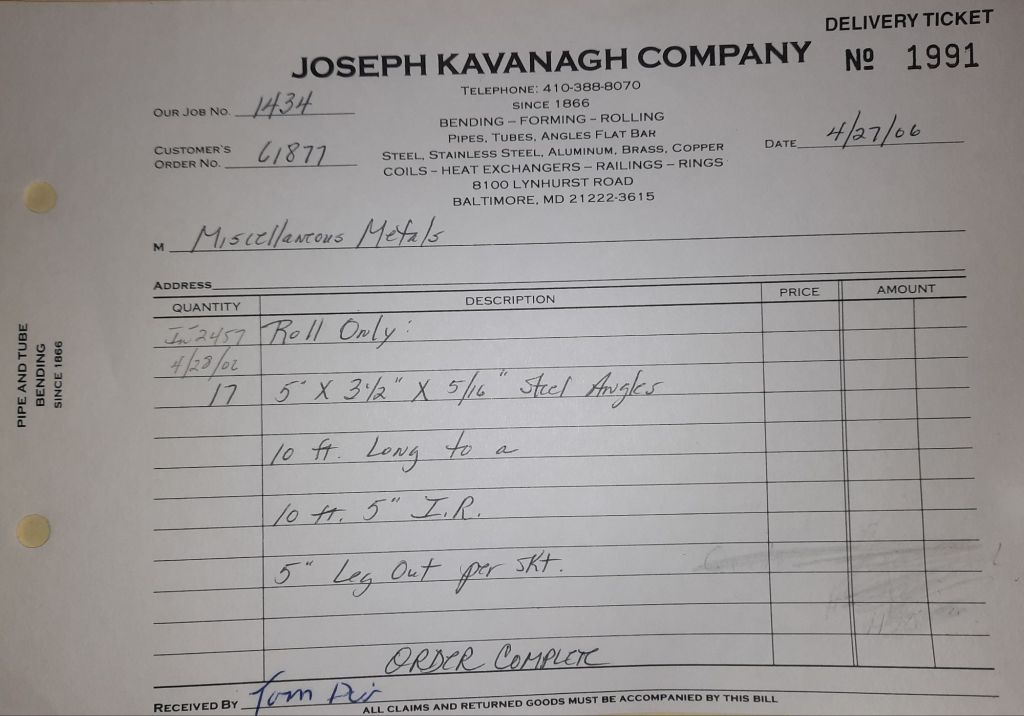 DELIVERY TICKET
JOSEPH KAVANAGH COMPANY
Nº 1991
TELEPHONE: 410-388-8070
SINCE 1866
OUR JOB NO. 1434
BENDING – FORMING – ROLLING
PIPES, TUBES, ANGLES FLAT BAR
DATE 4/27/06
CUSTOMER'S
ORDER NO. 61877
STEEL, STAINLESS STEEL, ALUMINUM, BRASS, COPPER
COILS – HEAT EXCHANGERS – RAILINGS – RINGS
8100 LYNHURST ROAD
BALTIMORE, MD 21222-3615
M Miscellaneous Metals
ADDRESS
QUANTITY DESCRIPTION PRICE AMOUNT
2457 Roll Only:
17 5" X 3 1/2" X 5/16" Steel Angles
10 ft. Long to a
10 ft. 5" I.R.
5" Leg Out per Skt.
ORDER COMPLETE
RECEIVED BY Tom
ALL CLAIMS AND RETURNED GOODS MUST BE ACCOMPANIED BY THIS BILL
PIPE AND TUBE
BENDING
SINCE 1866